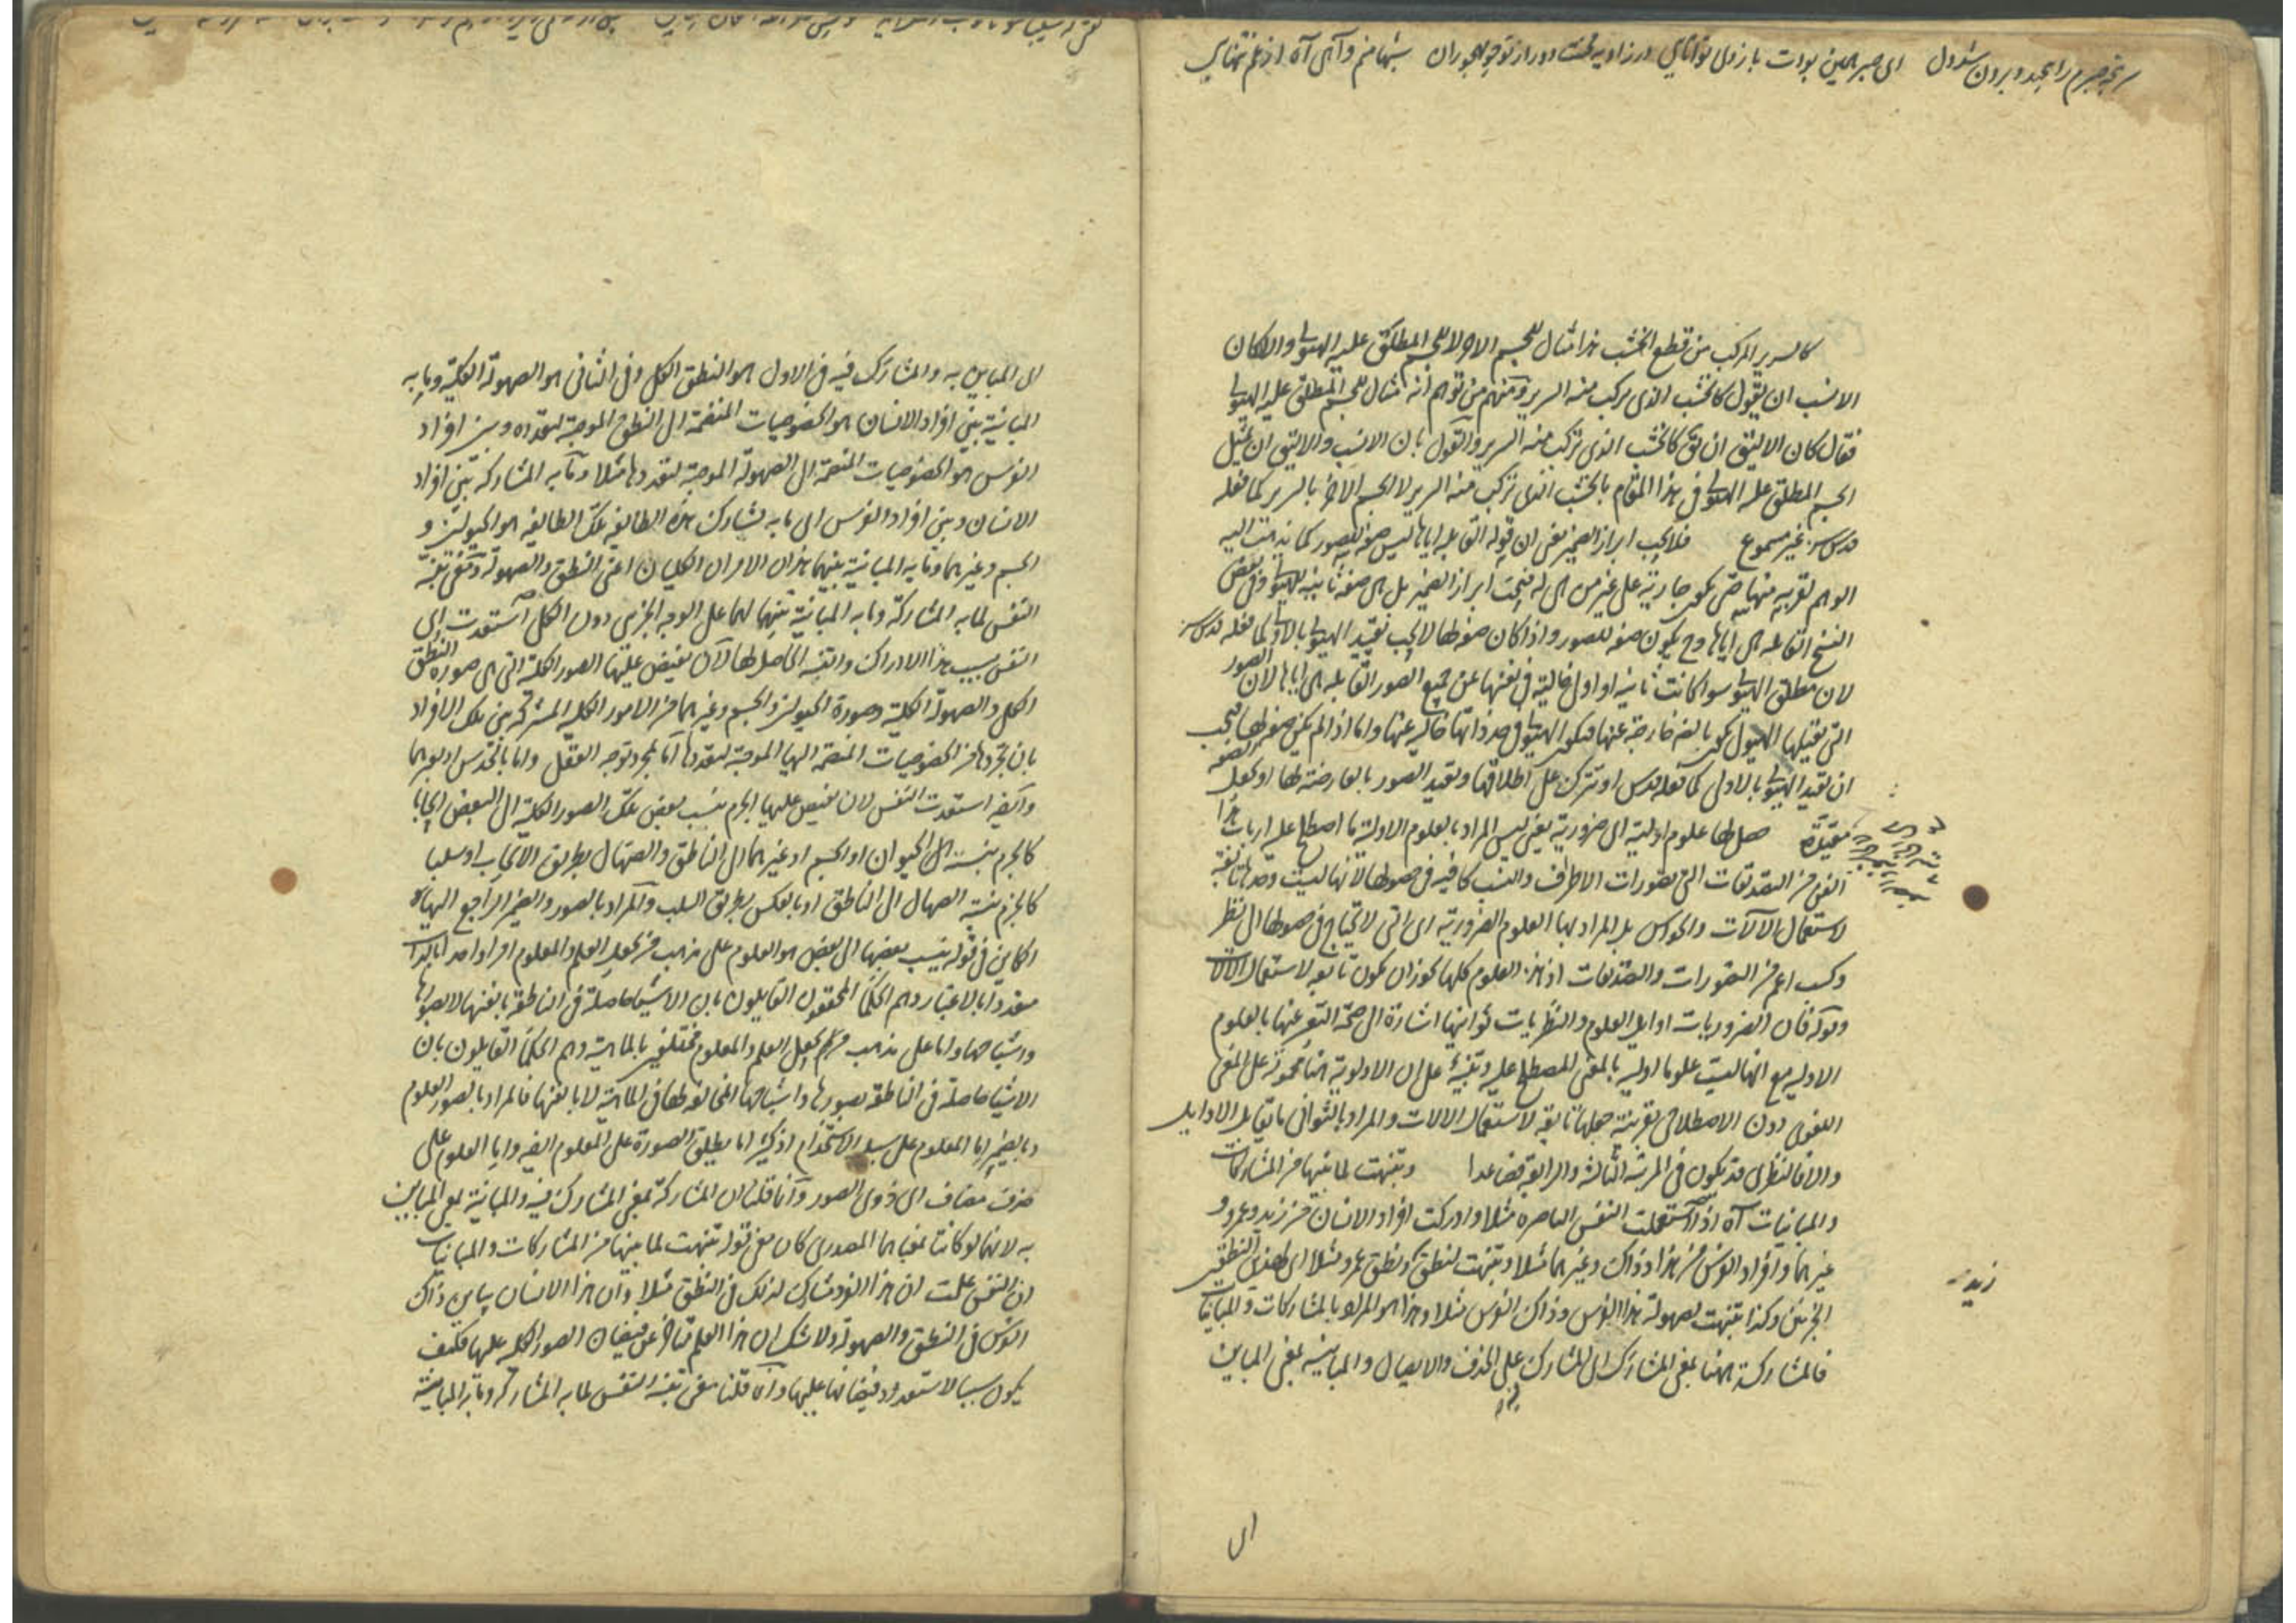 كالسرير المركب من قطع الخشب هذا مثال للجسم الاول لا للجسم المطلق عليه الهيولى والا لكان
الانسب ان يقول كالخشب الذى يركب منه السرير ومنهم من توهم انه مثال للجسم المطلق عليه الهيولى
فقال كان الاليق ان يق كالخشب الذى تركب منه السرير والقول بان الانسب والاليق ان يمثل
الجسم المطلق عليه الهيولى فى هذا المقام بالخشب الذى تركب منه السرير لا الجسم الاخر بالسرير كما فعله
قدس سره غير مسموع فلا يجب ابراز الضمير يعنى ان قوله القابلة اياها ليس صفة للصور كما يذهب اليه
الوهم لقربه منها حتى يكون جارية على غير من هى له فيجب ابراز الضمير بل هى صفة ثانية للهيولى وفى بعض
النسخ القابلة هى اياها وح يكون صفة للصور واذا كان صفة لها لا يجب تقييد الهيولى بالاولى كما فعله قدس سره
لان مطلق الهيولى سواء كانت ثانية او اولى خالية فى نفسها عن جميع الصور القابلة هى اياها لان الصور
التى تقبلها الهيولى يكون بالضرورة خارجة عنها فيكون الهيولى فى حد ذاتها خالية عنها واما اذا لم يكن صفة لها فيجب
ان تقيد الهيولى بالاولى كما فعله قدس سره او تترك على اطلاقها وتقيد الصور بالعارضة لها او يجعل الصفة
مقيدة حصل لها علوم اولية اى ضرورية يعنى ليس المراد بالعلوم الاولية ما اصطلح عليه ارباب هذا
الفن من التصديقات التى تصورات الاطراف والنسب كافية فى حصولها لانها ليست وحدها تابعة
لاستعمال الآلات والحواس بل المراد بها العلوم الضرورية اى التى لا تحتاج فى حصولها الى نظر
وكسب اعم من التصورات والتصديقات اذ هذه العلوم كلها يجوز ان يكون تابعة لاستعمال الآلات
وقوله فان الضروريات اوايل العلوم والنظريات ثوانيها اشارة الى صحة التعبير عنها بالعلوم
الاولية مع انها ليست علوما اولية بالمعنى المصطلح عليه وتنبيه على ان الاولية هنا محمولة على المعنى
اللغوى دون الاصطلاحى بقرينة جعلها تابعة لاستعمال الالات والمراد بالثوانى ما يقابل الاوايل
والا فالنظرى قد يكون فى المرتبة الثالثة والرابعة فصاعدا وتنبهت لما بينها من المشاركات
والمباينات آه اذا استعملت النفس الباصرة مثلا وادركت افراد الانسان من زيد وعمرو و
غيرهما وافراد الفرس من هذا وذاك وغيرهما مثلا وتنبهت لنطق زيد ونطق عمرو مثلا اى لهذين النطقين
الجزئين وكذا تنبهت لصهولة هذا الفرس وذاك الفرس مثلا وهذا هو المراد بالمشاركات والمباينات
فالمشاركة ههنا بمعنى المشارك اى المشارك فيه على الحذف والايصال والمباينة بمعنى المباين
زيد
اى
اى المباين به والمشارك فيه فى الاول هو النطق الكلى وفى الثانى هو الصهولة الكلية وما به
المباينة بين افراد الانسان هو الخصوصيات المنضمة الى النطق الموجبة لتعدده وبين افراد
الفرس هو الخصوصيات المنضمة الى الصهولة الموجبة لتعددها مثلا وما به المشاركة بين افراد
الانسان وبين افراد الفرس اى ما به تشارك هذه الطائفة تلك الطائفة هو الحيوانية و
الجسم وغيرهما وما به المباينة بينهما هذان الامران الكليان اعنى النطق والصهولة ومعنى تنبه
النفس لما به المشاركة وما به المباينة تنبهها لهما على الوجه الجزئى دون الكلى استعدت اى
النفس بسبب هذا الادراك والتنبه الحاصل لها لان يفيض عليها الصور الكلية التى هى صورة النطق
الكلى والصهولة الكلية وصورة الحيوانية والجسم وغيرهما من الامور الكلية المشتركة بين تلك الافراد
بان تجردها من الخصوصيات المنضمة اليها الموجبة لتعددها اما بمجرد توجه العقل واما بالحدس او بغيرهما
وايضا استعدت النفس لان يفيض عليها الجزم بنسب بعض تلك الصور الكلية الى البعض ايجابا
كالجزم بنسبة الحيوان او الجسم او غيرهما الى الناطق والصهال بطريق الايجاب او سلبا
كالجزم بنسبة الصهال الى الناطق او بالعكس بطريق السلب والمراد بالصور والضمير الراجع اليها
الكاين فى قوله ينسب بعضها الى بعض هو العلوم على مذهب من يجعل العلم والمعلوم امرا واحدا بالذات
متعددا بالاعتبار وهم الحكماء المحققون القايلون بان الاشياء حاصلة فى الناطقة بانفسها لا بصورها
واشباحها واما على مذهب من يجعل العلم والمعلوم مختلفين بالماهية وهم الحكماء القايلون بان
الاشياء حاصلة فى الناطقة بصورها واشباحها المخالفة لها فى الماهية لا بانفسها فالمراد بالصور العلوم
وبالضمير اما المعلوم على سبيل الاستخدام اذ كثيرا ما يطلق الصورة على المعلوم ايضا واما العلوم على
حذف مضاف اى ذوى الصور وانما قلنا ان المشاركة بمعنى المشارك فيه والمباينة بمعنى المباين
به لانهما لو كانتا بمعناهما المصدرى كان معنى قوله تنبهت لما بينها من المشاركات والمباينات
ان النفس علمت ان هذا الفرد مشارك لذلك فى النطق مثلا وان هذا الانسان يباين ذاك
الفرس فى النطق والصهولة ولا شك ان هذا العلم متاخر عن فيضان الصور الكلية عليها فكيف
يكون سببا لاستعداد فيضانها عليها وانما قلنا معنى تنبه النفس لما به المشاركة وما به المباينة